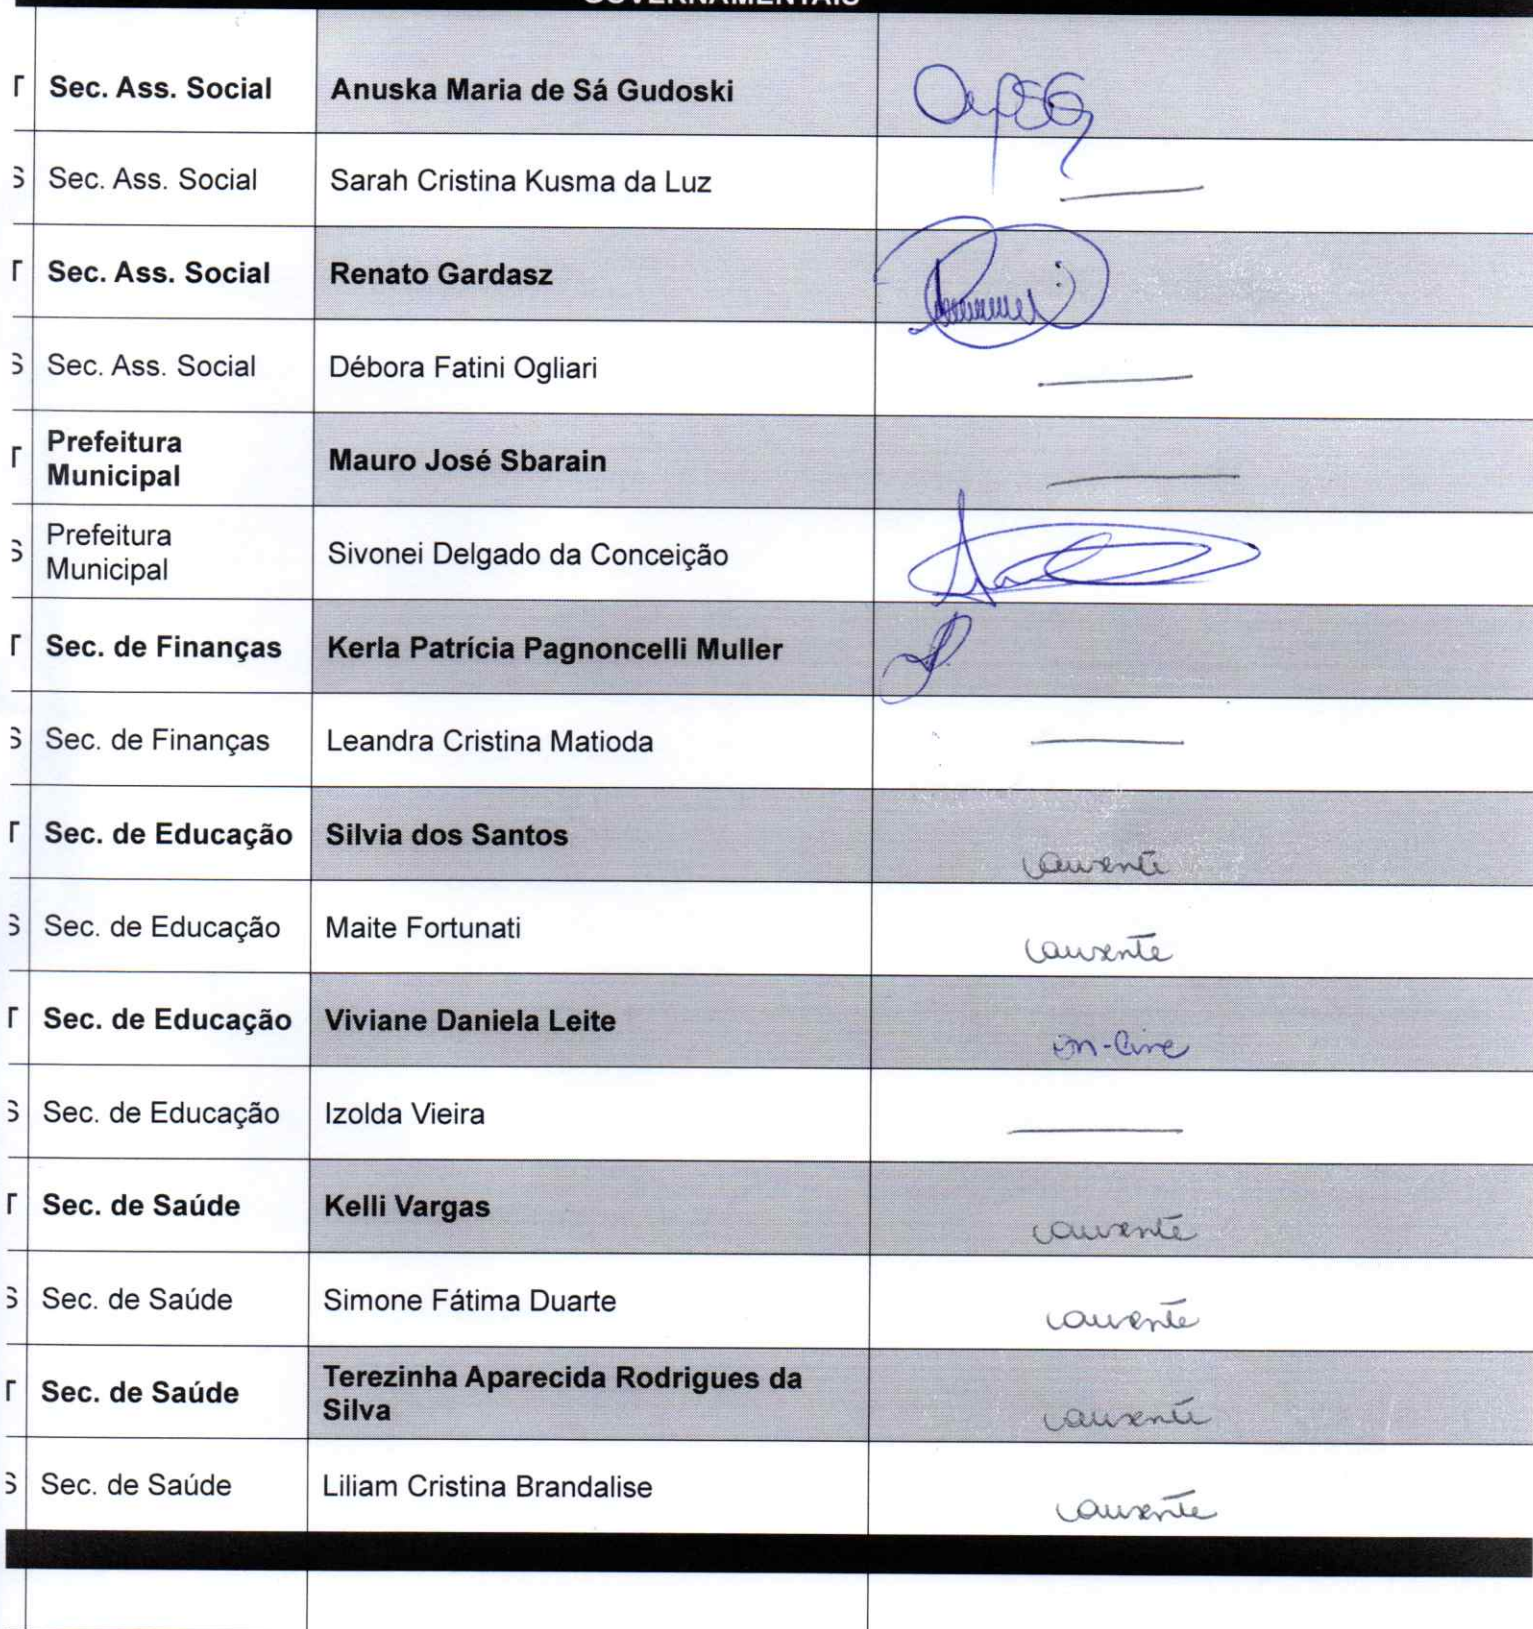 GOVERNAMENTAIS
T Sec. Ass. Social Anuska Maria de Sá Gudoski
S Sec. Ass. Social Sarah Cristina Kusma da Luz
T Sec. Ass. Social Renato Gardasz
S Sec. Ass. Social Débora Fatini Ogliari
T Prefeitura Municipal Mauro José Sbarain
S Prefeitura Municipal Sivonei Delgado da Conceição
T Sec. de Finanças Kerla Patrícia Pagnoncelli Muller
S Sec. de Finanças Leandra Cristina Matioda
T Sec. de Educação Silvia dos Santos ausente
S Sec. de Educação Maite Fortunati ausente
T Sec. de Educação Viviane Daniela Leite on-line
S Sec. de Educação Izolda Vieira
T Sec. de Saúde Kelli Vargas ausente
S Sec. de Saúde Simone Fátima Duarte ausente
T Sec. de Saúde Terezinha Aparecida Rodrigues da Silva ausente
S Sec. de Saúde Liliam Cristina Brandalise ausente